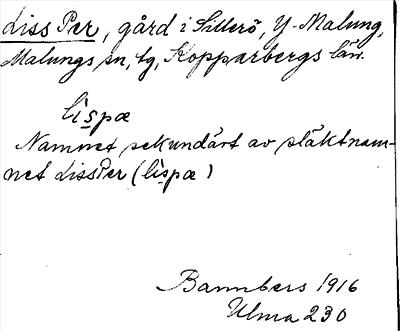 Liss Per, gård i Sillerö, Y-Malung,
Malungs sn, Kopparbergs län.
lìspæ
Namnet sekundärt av släktnam-
net LissPer (lìspæ)
Bannbers 1916
Ulma 230